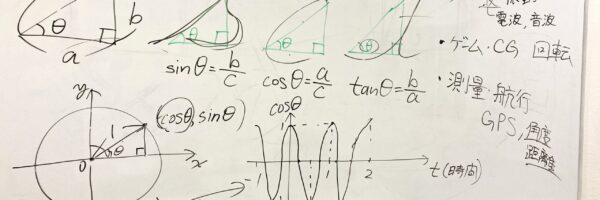 電波,音波
b
θ
a
θ
θ
θ
sinθ=b/c
cosθ=a/c
tanθ=b/a
・ゲーム・CG 回転
・測量・航行
GPS,角度
距離
y
(cosθ,sinθ)
1
θ
0
x
cosθ
1
-1
1
2
t(時間)